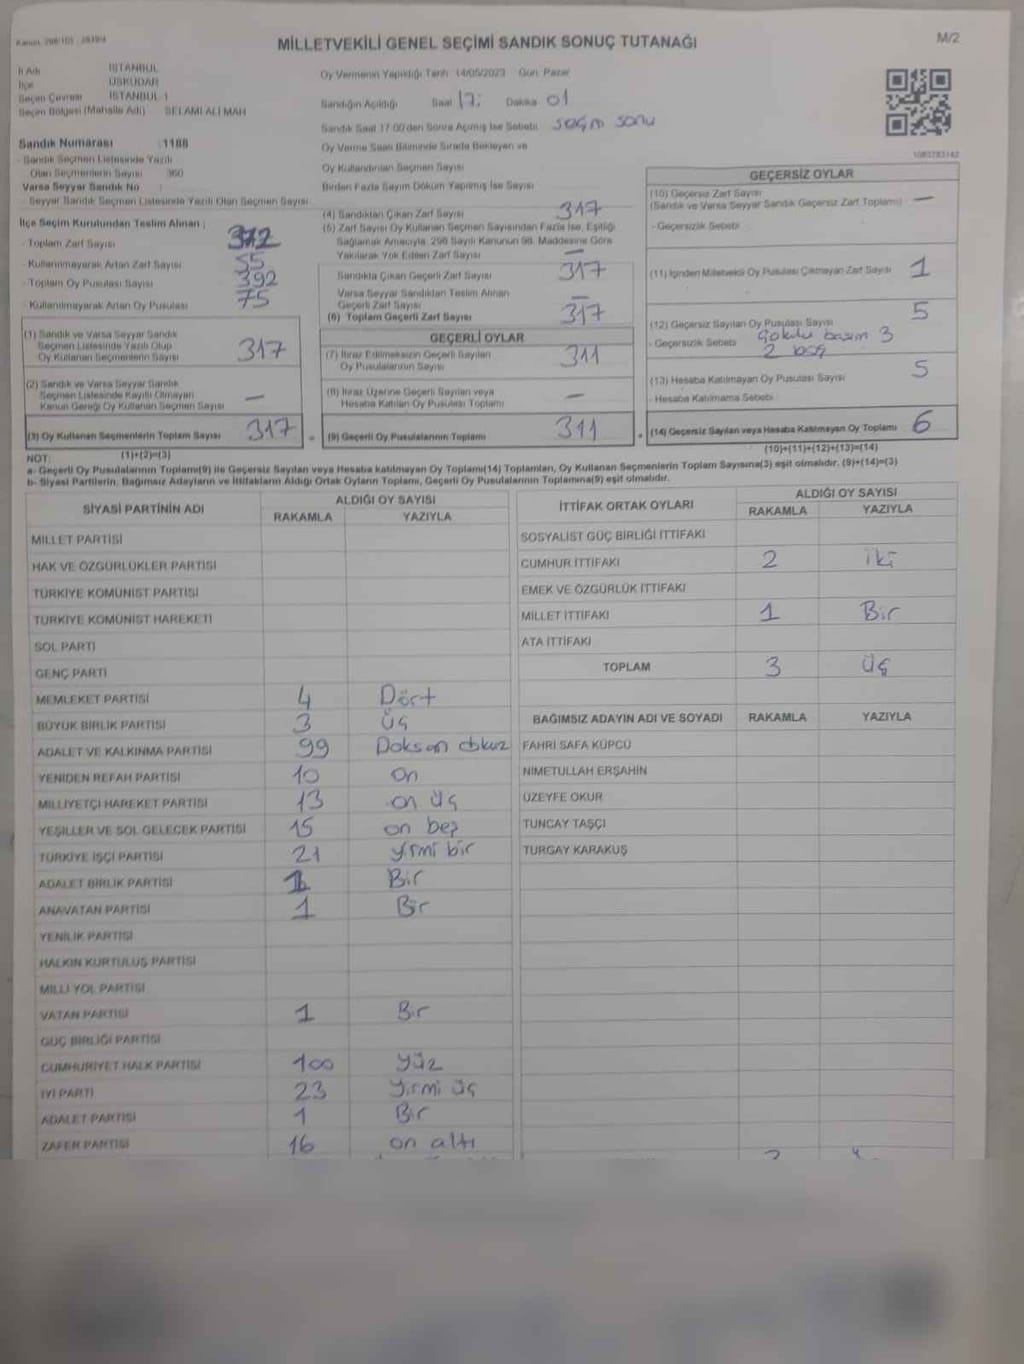 Kanun: 298/105 - 2839/4
MİLLETVEKİLİ GENEL SEÇİMİ SANDIK SONUÇ TUTANAĞI
M/2
İl Adı İSTANBUL
İlçe ÜSKÜDAR
Seçim Çevresi İSTANBUL 1
Seçim Bölgesi (Mahalle Adı) SELAMİ ALİ MAH
Sandık Numarası : 1188
- Sandık Seçmen Listesinde Yazılı
Olan Seçmenlerin Sayısı 360
Varsa Seyyar Sandık No :
- Seyyar Sandık Seçmen Listesinde Yazılı Olan Seçmen Sayısı
İlçe Seçim Kurulundan Teslim Alınan ;
- Toplam Zarf Sayısı 372
- Kullanılmayarak Artan Zarf Sayısı 55
- Toplam Oy Pusulası Sayısı 392
- Kullanılmayarak Artan Oy Pusulası 75
(1) Sandık ve Varsa Seyyar Sandık
Seçmen Listesinde Yazılı Olup
Oy Kullanan Seçmenlerin Sayısı 317
(2) Sandık ve Varsa Seyyar Sandık
Seçmen Listesinde Kayıtlı Olmayan
Kanun Gereği Oy Kullanan Seçmen Sayısı —
(3) Oy Kullanan Seçmenlerin Toplam Sayısı 317
(1)+(2)=(3)
Oy Vermenin Yapıldığı Tarih 14/05/2023 Gün: Pazar
Sandığın Açıldığı Saat 17: Dakika 01
Sandık Saat 17.00'den Sonra Açılmış İse Sebebi seçim sonu
Oy Verme Saati Bitiminde Sırada Bekleyen ve
Oy Kullandırılan Seçmen Sayısı
Birden Fazla Sayım Döküm Yapılmış İse Sayısı
(4) Sandıktan Çıkan Zarf Sayısı 317
(5) Zarf Sayısı Oy Kullanan Seçmen Sayısından Fazla İse, Eşitliği
Sağlamak Amacıyla, 298 Sayılı Kanunun 98. Maddesine Göre
Yakılarak Yok Edilen Zarf Sayısı —
Sandıkta Çıkan Geçerli Zarf Sayısı 317
Varsa Seyyar Sandıktan Teslim Alınan
Geçerli Zarf Sayısı —
(6) Toplam Geçerli Zarf Sayısı 317
GEÇERLİ OYLAR
(7) İtiraz Edilmeksizin Geçerli Sayılan
Oy Pusulalarının Sayısı 311
(8) İtiraz Üzerine Geçerli Sayılan veya
Hesaba Katılan Oy Pusulası Toplamı —
(9) Geçerli Oy Pusulalarının Toplamı 311
1083783142
GEÇERSİZ OYLAR
(10) Geçersiz Zarf Sayısı
(Sandık ve Varsa Seyyar Sandık Geçersiz Zarf Toplamı) —
- Geçersizlik Sebebi
(11) İçinden Milletvekili Oy Pusulası Çıkmayan Zarf Sayısı 1
(12) Geçersiz Sayılan Oy Pusulası Sayısı 5
- Geçersizlik Sebebi Çoklu basım 3
2 boş
(13) Hesaba Katılmayan Oy Pusulası Sayısı 5
- Hesaba Katılmama Sebebi
(14) Geçersiz Sayılan veya Hesaba Katılmayan Oy Toplamı 6
(10)+(11)+(12)+(13)=(14)
NOT:
a- Geçerli Oy Pusulalarının Toplamı(9) ile Geçersiz Sayılan veya Hesaba katılmayan Oy Toplamı(14) Toplamları, Oy Kullanan Seçmenlerin Toplam Sayısına(3) eşit olmalıdır. (9)+(14)=(3)
b- Siyasi Partilerin, Bağımsız Adayların ve İttifakların Aldığı Ortak Oyların Toplamı, Geçerli Oy Pusulalarının Toplamına(9) eşit olmalıdır.
SİYASİ PARTİNİN ADI ALDIĞI OY SAYISI
RAKAMLA YAZIYLA
MİLLET PARTİSİ
HAK VE ÖZGÜRLÜKLER PARTİSİ
TÜRKİYE KOMÜNİST PARTİSİ
TÜRKİYE KOMÜNİST HAREKETİ
SOL PARTİ
GENÇ PARTİ
MEMLEKET PARTİSİ 4 Dört
BÜYÜK BİRLİK PARTİSİ 3 üç
ADALET VE KALKINMA PARTİSİ 99 Doksan dokuz
YENİDEN REFAH PARTİSİ 10 on
MİLLİYETÇİ HAREKET PARTİSİ 13 on üç
YEŞİLLER VE SOL GELECEK PARTİSİ 15 on beş
TÜRKİYE İŞÇİ PARTİSİ 21 yirmi bir
ADALET BİRLİK PARTİSİ 1 Bir
ANAVATAN PARTİSİ 1 Bir
YENİLİK PARTİSİ
HALKIN KURTULUŞ PARTİSİ
MİLLİ YOL PARTİSİ
VATAN PARTİSİ 1 Bir
GÜÇ BİRLİĞİ PARTİSİ
CUMHURİYET HALK PARTİSİ 100 yüz
İYİ PARTİ 23 yirmi üç
ADALET PARTİSİ 1 Bir
ZAFER PARTİSİ 16 on altı
İTTİFAK ORTAK OYLARI ALDIĞI OY SAYISI
RAKAMLA YAZIYLA
SOSYALİST GÜÇ BİRLİĞİ İTTİFAKI
CUMHUR İTTİFAKI 2 iki
EMEK VE ÖZGÜRLÜK İTTİFAKI
MİLLET İTTİFAKI 1 Bir
ATA İTTİFAKI
TOPLAM 3 üç
BAĞIMSIZ ADAYIN ADI VE SOYADI RAKAMLA YAZIYLA
FAHRİ SAFA KÜPCÜ
NİMETULLAH ERŞAHİN
ÜZEYFE OKUR
TUNCAY TAŞÇI
TURGAY KARAKUŞ